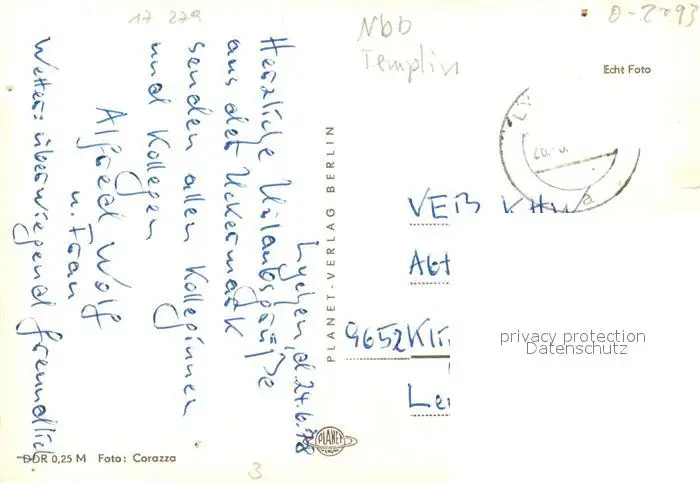 17 279
0-2093
Nbb
Templin
Echt Foto
Lychen, d. 24.6.78
Herzliche Urlaubsgrüße
aus der Uckermark
senden allen Kolleginnen
und Kollegen
Alfred Wolf
u. Frau
Wetter: überwiegend freundlich
PLANET-VERLAG BERLIN
VEB KHW
Abt
9652 Kli
Le
privacy protection
Datenschutz
PLANET
VERLAG
DDR 0,25 M Foto: Corazza
3